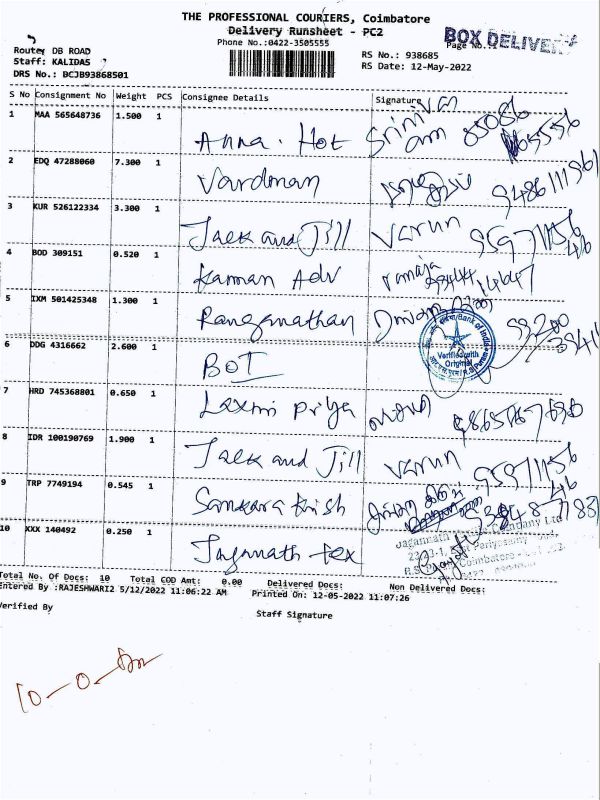 THE PROFESSIONAL COURIERS, Coimbatore
Delivery Runsheet - PC2
BOX DELIVERY
Phone No.:0422-3505555
Page No.:
Route: DB ROAD
RS No.: 938685
Staff: KALIDAS
RS Date: 12-May-2022
DRS No.: BCJB93868501
S No Consignment No Weight PCS Consignee Details Signature
1 MAA 565648736 1.500 1 Anna. Hot 85086
2 EDQ 47288060 7.300 1 Vardman 9486111961
3 KUR 526122334 3.300 1 Jack and Jill Varun 95971156
46
4 BOD 309151 0.520 1 Kannan Adv
5 IXM 501425348 1.300 1 Ranganathan
Bank of India
Verified with
Original
6 DDG 4316662 2.600 1 BOT
7 HRD 745368801 0.650 1 Laxmi Priya
8 IDR 100190769 1.900 1 Jack and Jill Varun 95971156
46
9 TRP 7749194 0.545 1 Sankara
10 XXX 140492 0.250 1 Jagannath Tex
Jagannath Company Ltd
Coimbatore
Total No. Of Docs: 10 Total COD Amt: 0.00 Delivered Docs: Non Delivered Docs:
Entered By :RAJESHWARI2 5/12/2022 11:06:22 AM Printed On: 12-05-2022 11:07:26
Verified By
Staff Signature
10-0-